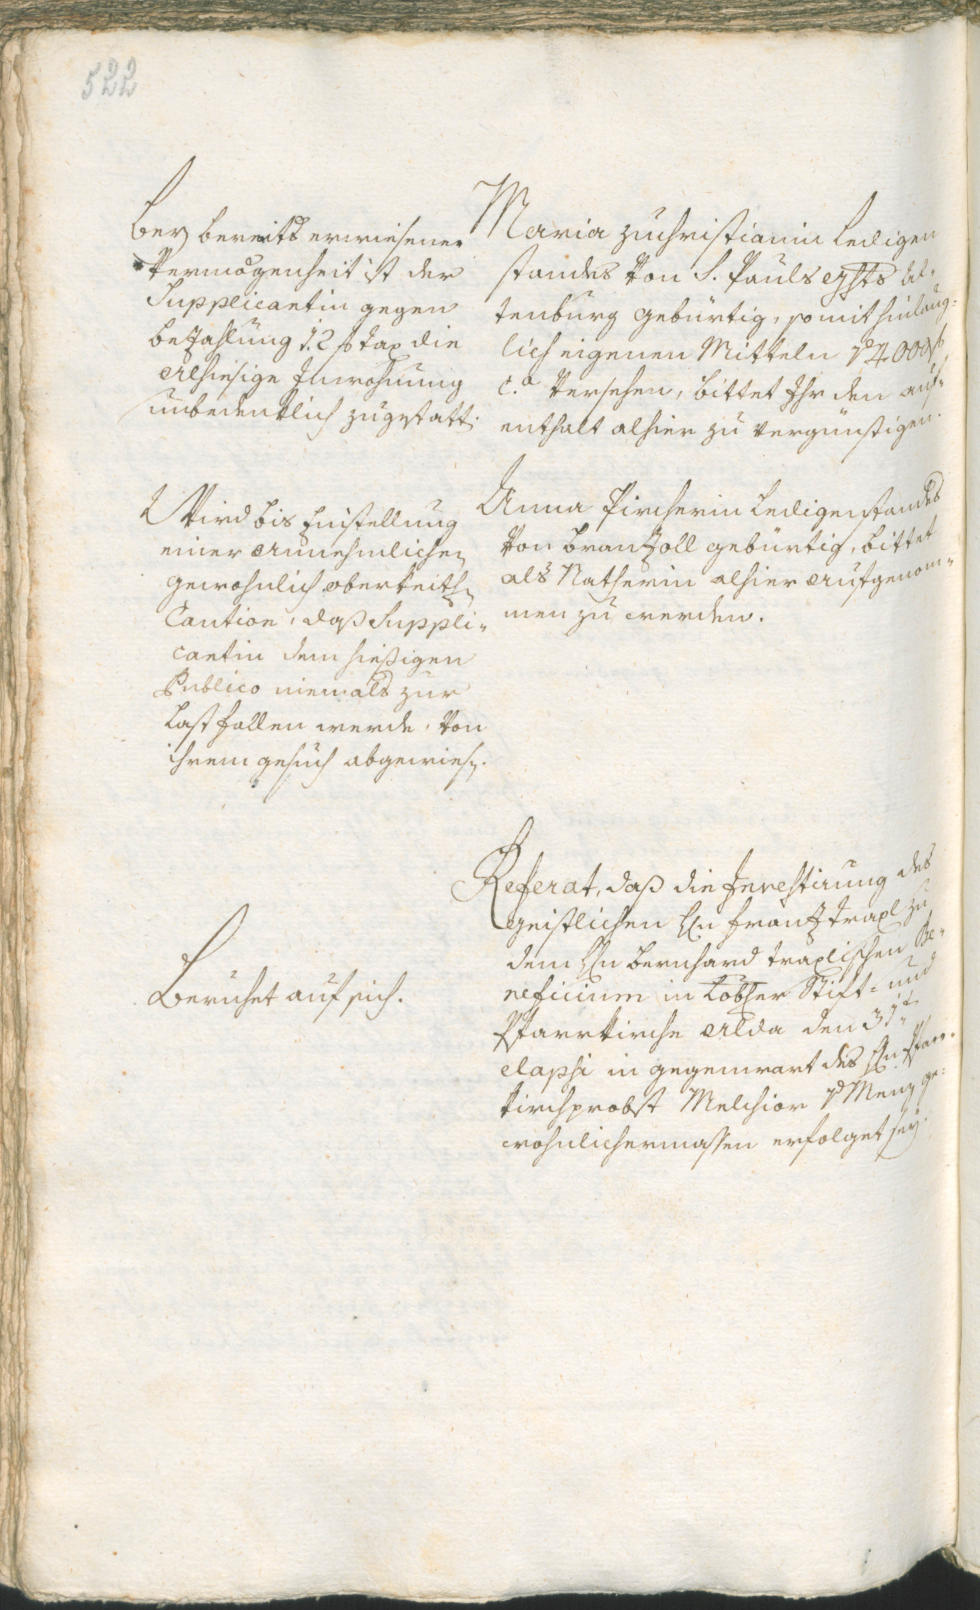 522
Bey bereits erwiesener
Vermögenheit ist der
Supplicantin gegen
bezahlung 12 f tax die
alhiesige Inwohnung
unbedenklich zugstatt.
Maria zuchristianin Ledigen
standes von S. Pauls ghts Al-
tenburg gebürtig, so mit hinläng-
lich eigenen Mitteln p 400 f
ca versehen, bittet Ihr den auf-
enthalt alhier zu vergünstigen.
Wird bis Einstellung
einer annehmlichen
gewohnlich oberkeithn
Caution, daß Suppli-
cantin dem hiesigen
Publico niemals zur
Last fallen werde, von
ihrem gesuch abgewiesn.
Anna Pircherin Ledigenstandes
von Branzoll gebürtig, bittet
als Natherin alhier aufgenom-
men zu werden.
Beruhet auf sich.
Referat, daß die Investirung des
geistlichen Hn Frantz Traxl zu
dem Hn Bernhard Traxlischen Be-
neficium in Stift- und
Pfarrkirche alda den 31t
elapsi in gegenwart des Hn Pfarr-
kirchprobst Melchior v Menz ge-
wohnlichermassen erfolget sey.